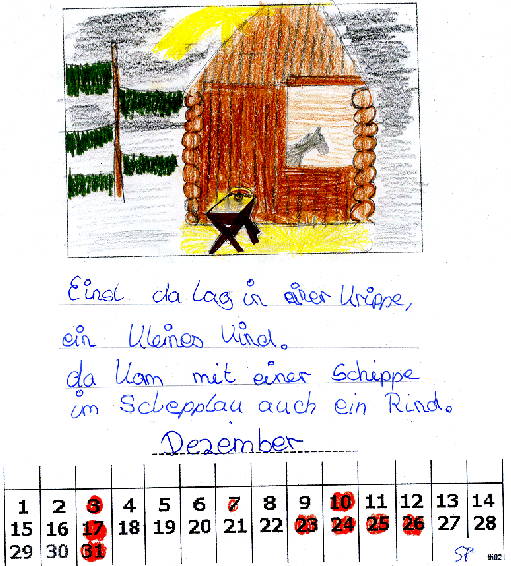 Eind da lag in einer Krippe,
ein kleines Kind.
da kam mit einer Schippe
im Schepplau auch ein Rind.
Dezember
1 2 3 4 5 6 7 8 9 10 11 12 13 14
15 16 17 18 19 20 21 22 23 24 25 26 27 28
29 30 31